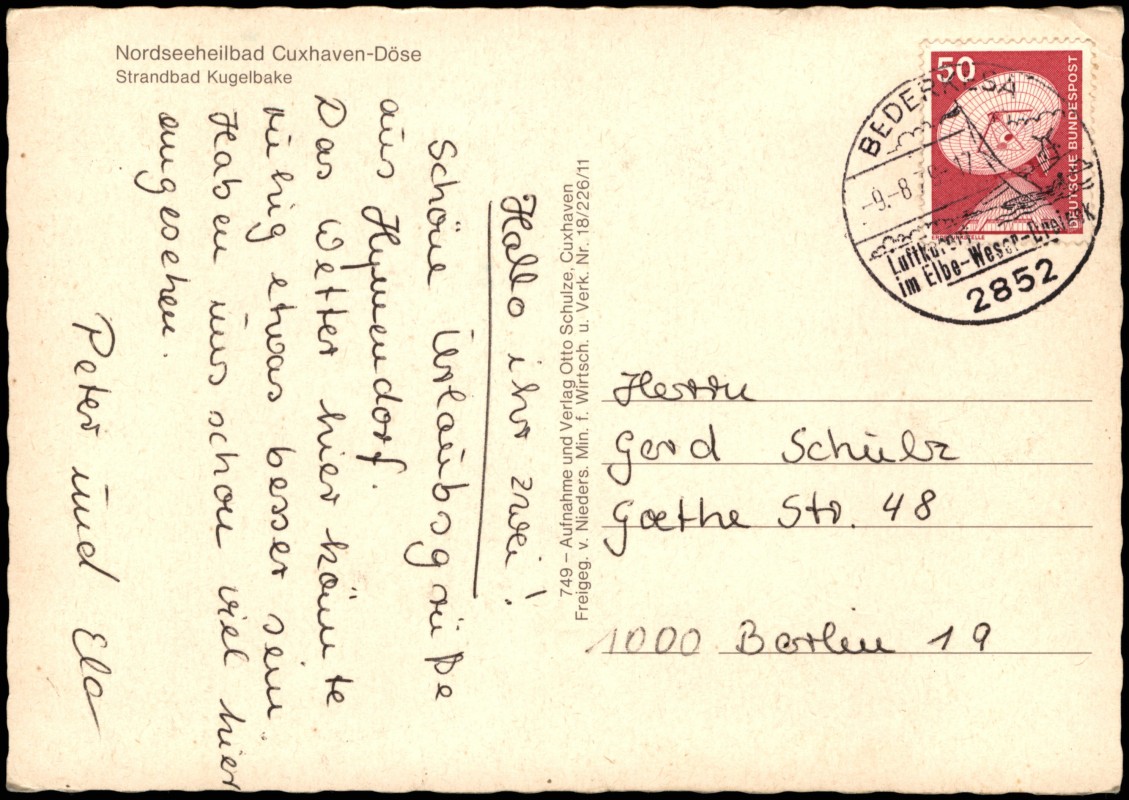 Nordseeheilbad Cuxhaven-Döse
Strandbad Kugelbake
Hallo ihr zwei!
Schöne Urlaubsgrüße
aus Hymendorf.
Das Wetter hier könnte
ruhig etwas besser sein.
Haben uns schon viel hier
angesehen.
Peter und Ela
749 – Aufnahme und Verlag Otto Schulze, Cuxhaven
Freigeg. v. Nieders. Min. f. Wirtsch. u. Verk. Nr. 18/226/11
50
DEUTSCHE BUNDESPOST
BEDERKESA
-9.-8.
Luftkurort
im Elbe-Weser-Dreieck
2852
Herrn
Gerd Schulz
Goethe Str. 48
1000 Berlin 19